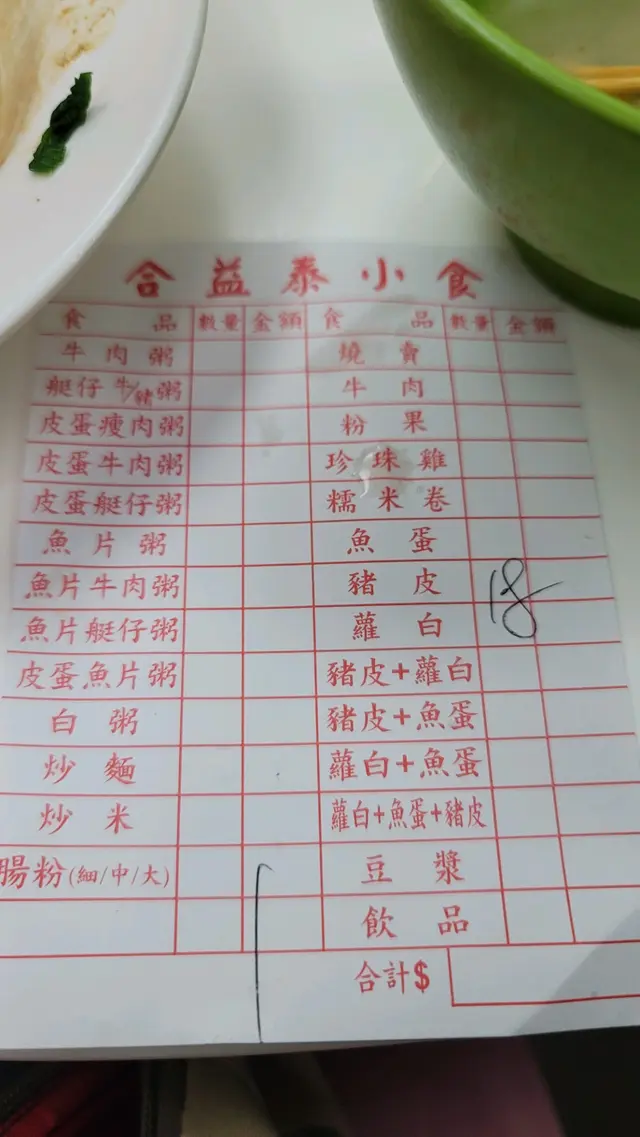 合益泰小食
食品 數量 金額 食品 數量 金額
牛肉粥 燒賣
艇仔牛/豬粥 牛肉
皮蛋瘦肉粥 粉果
皮蛋牛肉粥 珍珠雞
皮蛋艇仔粥 糯米卷
魚片粥 魚蛋
魚片牛肉粥 豬皮 18
魚片艇仔粥 蘿白
皮蛋魚片粥 豬皮+蘿白
白粥 豬皮+魚蛋
炒麵 蘿白+魚蛋
炒米 蘿白+魚蛋+豬皮
腸粉(細/中/大) 豆漿
飲品
合計$